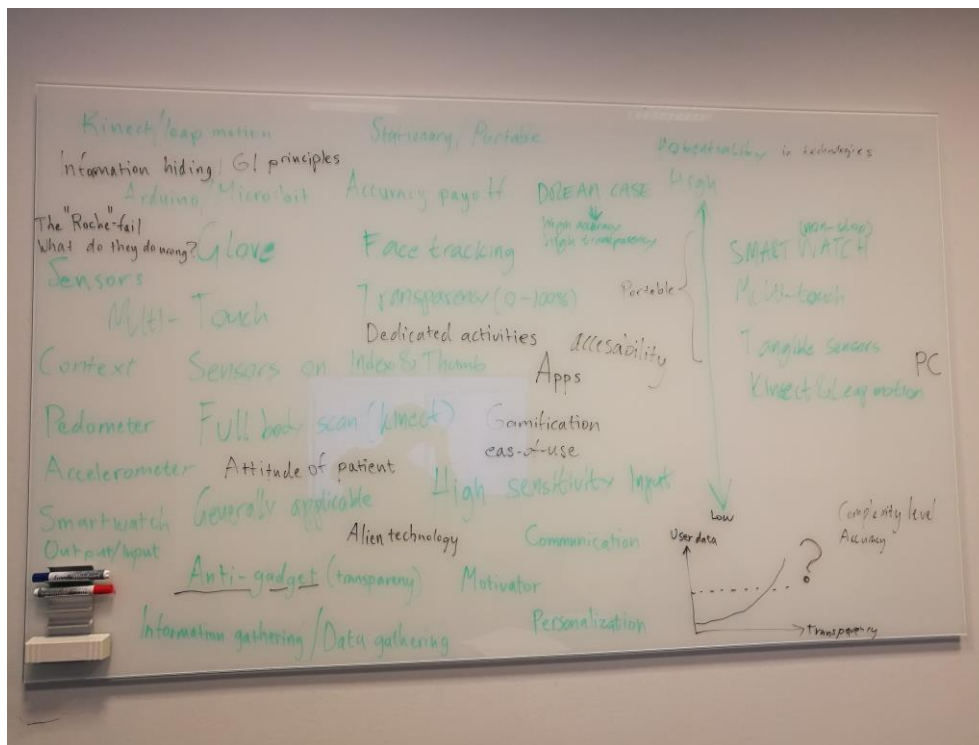 Kinect/leap motion
Stationary/Portable
Potentiality in technologies
Information hiding/GI principles
Arduino/Micro:bit
Accuracy payoff
DREAM CASE
High
high accuracy
high transparency
The "Roche"-fail
What do they do wrong?
Glove
Face tracking
(non-stop)
SMART WATCH
Sensors
Transparency (0-100%)
Portable
Multi-touch
Multi-Touch
Dedicated activities
accesability
Tangible sensors
PC
Context
Sensors on Index & Thumb
Apps
Kinect & Leap motion
Pedometer
Full body scan (kinect)
Gamification
eas-of-use
Accelerometer
Attitude of patient
High sensitivity Input
Generally applicable
Smartwatch
Output/Input
Alien technology
Communication
Low
User data
Complexity level
Accuracy
?
Anti-gadget (transpareny)
Motivator
Information gathering/Data gathering
Personalization
transparency